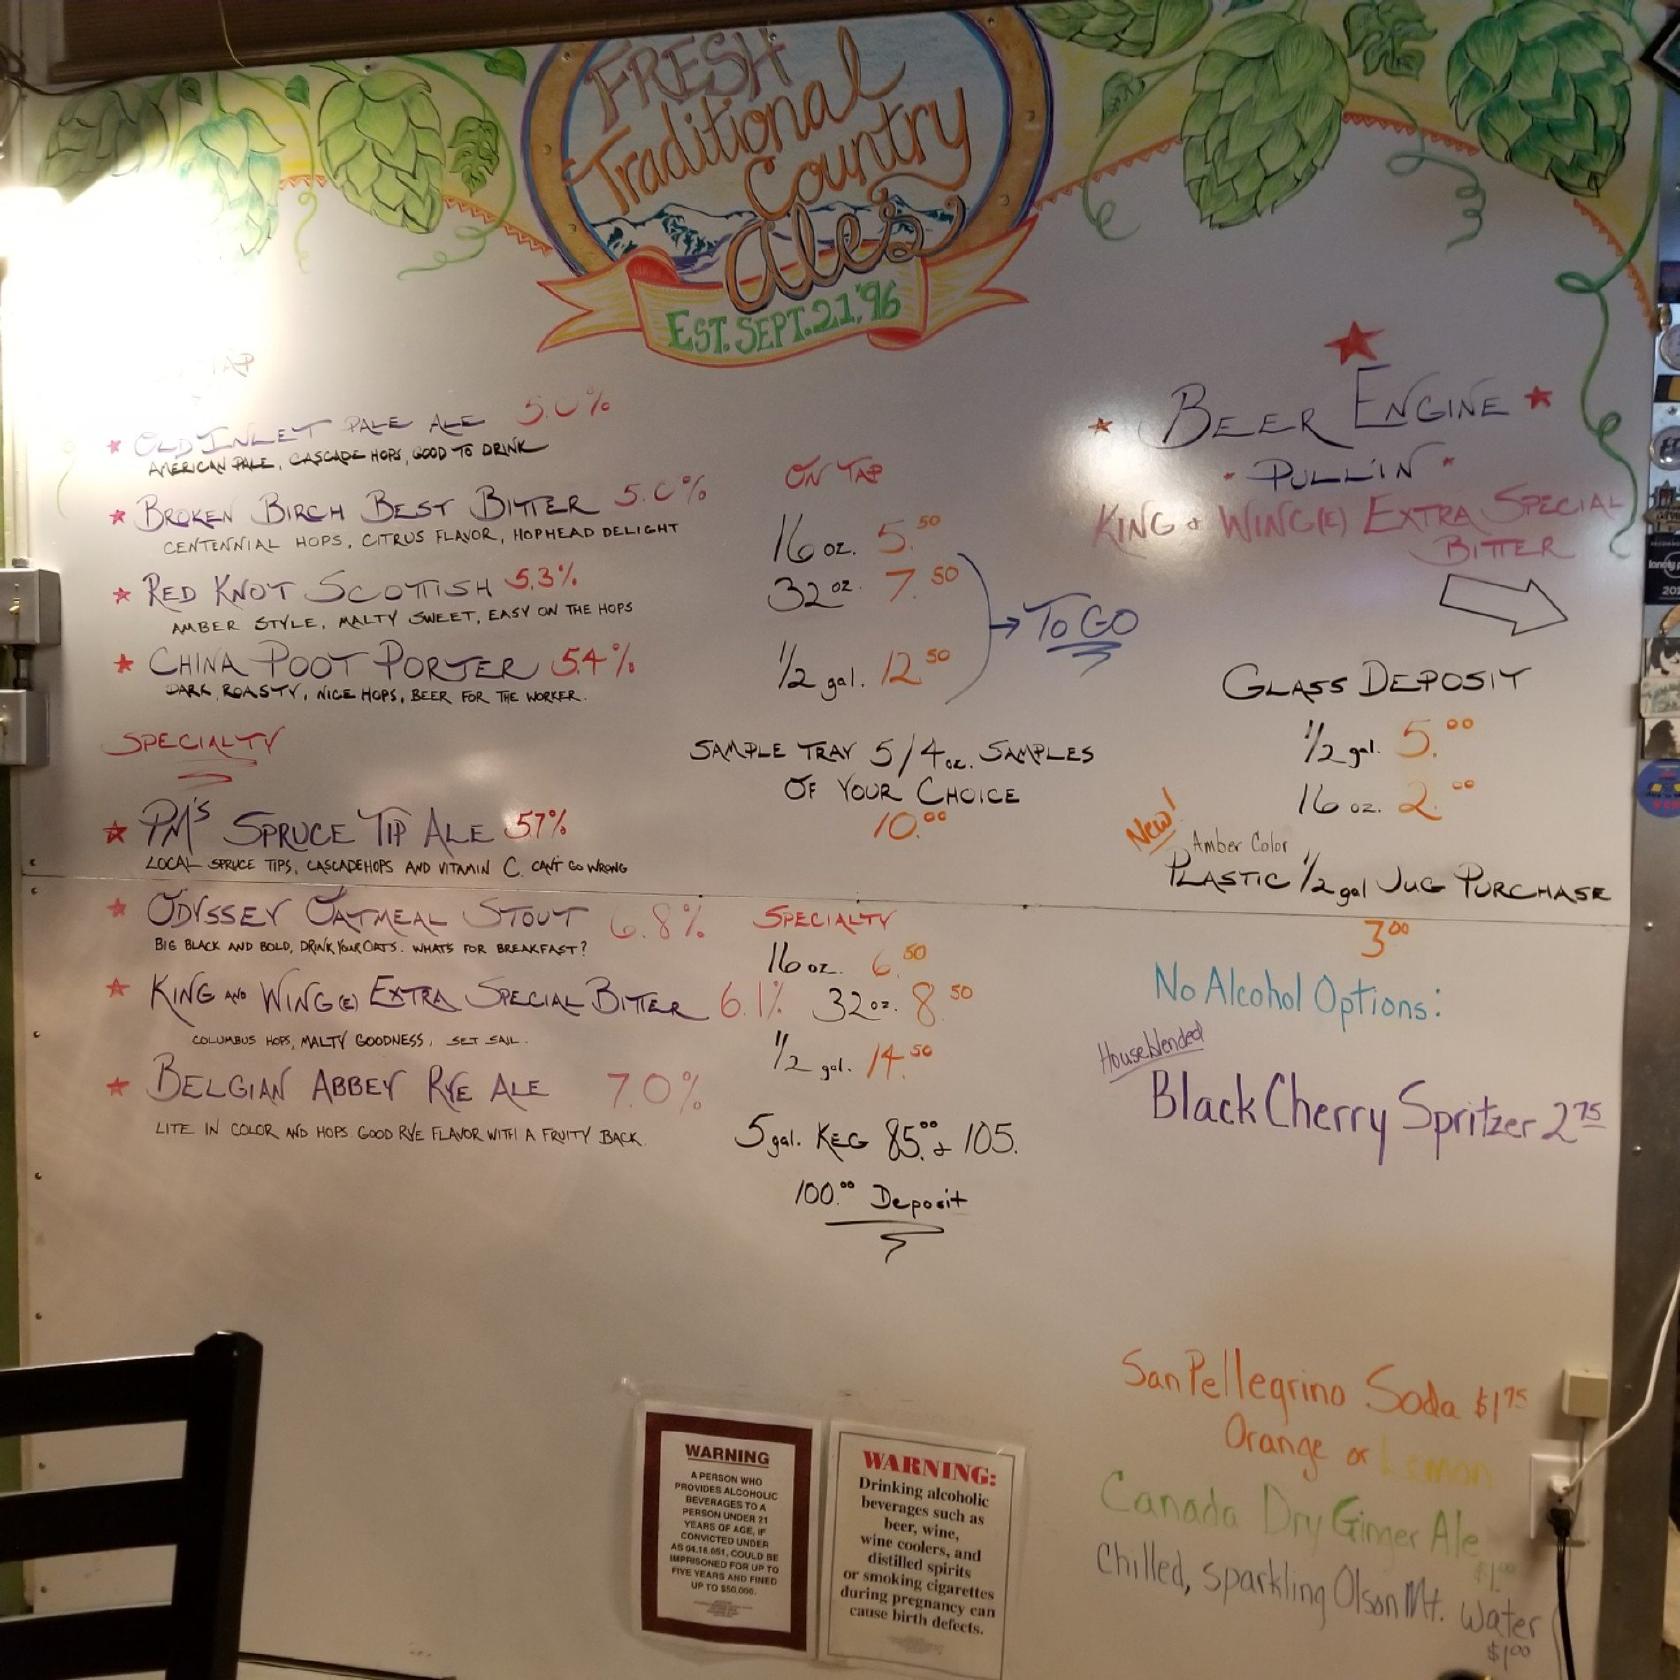 FRESH
Traditional
Country
Ales
EST. SEPT. 21, '96
TAP
★ OLD INLET PALE ALE 5.0%
AMERICAN PALE, CASCADE HOPS, GOOD TO DRINK
★ BROKEN BIRCH BEST BITTER 5.0%
CENTENNIAL HOPS, CITRUS FLAVOR, HOPHEAD DELIGHT
★ RED KNOT SCOTTISH 5.3%
AMBER STYLE, MALTY SWEET, EASY ON THE HOPS
★ CHINA POOT PORTER 5.4%
DARK, ROASTY, NICE HOPS, BEER FOR THE WORKER.
SPECIALTY
★ PM'S SPRUCE TIP ALE 5.7%
LOCAL SPRUCE TIPS, CASCADE HOPS AND VITAMIN C. CAN'T GO WRONG
★ ODYSSEY OATMEAL STOUT 6.8%
BIG BLACK AND BOLD, DRINK YOUR OATS. WHATS FOR BREAKFAST?
★ KING AND WING(E) EXTRA SPECIAL BITTER 6.1%
COLUMBUS HOPS, MALTY GOODNESS, SET SAIL.
★ BELGIAN ABBEY RYE ALE 7.0%
LITE IN COLOR AND HOPS. GOOD RYE FLAVOR WITH A FRUITY BACK.
ON TAP
16 oz. 5.50
32 oz. 7.50
1/2 gal. 12.50
→ TO GO
SAMPLE TRAY 5/4 oz. SAMPLES
OF YOUR CHOICE
10.00
SPECIALTY
16 oz. 6.50
32 oz. 8.50
1/2 gal. 14.50
5 gal. KEG 85.00 & 105.
100.00 Deposit
★ BEER ENGINE ★
PULL'IN
KING & WING(E) EXTRA SPECIAL
BITTER
GLASS DEPOSIT
1/2 gal. 5.00
16 oz. 2.00
New!
Amber Color
PLASTIC 1/2 gal JUG PURCHASE
3.00
No Alcohol Options:
Houseblended
Black Cherry Spritzer 2.75
San Pellegrino Soda $1.75
Orange or Lemon
Canada Dry Ginger Ale
$1.00
Chilled, Sparkling Olson Mt. Water
$1.00
WARNING
A PERSON WHO
PROVIDES ALCOHOLIC
BEVERAGES TO A
PERSON UNDER 21
YEARS OF AGE, IF
CONVICTED UNDER
AS 04.16.051, COULD BE
IMPRISONED FOR UP TO
FIVE YEARS AND FINED
UP TO $50,000.
WARNING:
Drinking alcoholic
beverages such as
beer, wine,
wine coolers, and
distilled spirits
or smoking cigarettes
during pregnancy can
cause birth defects.